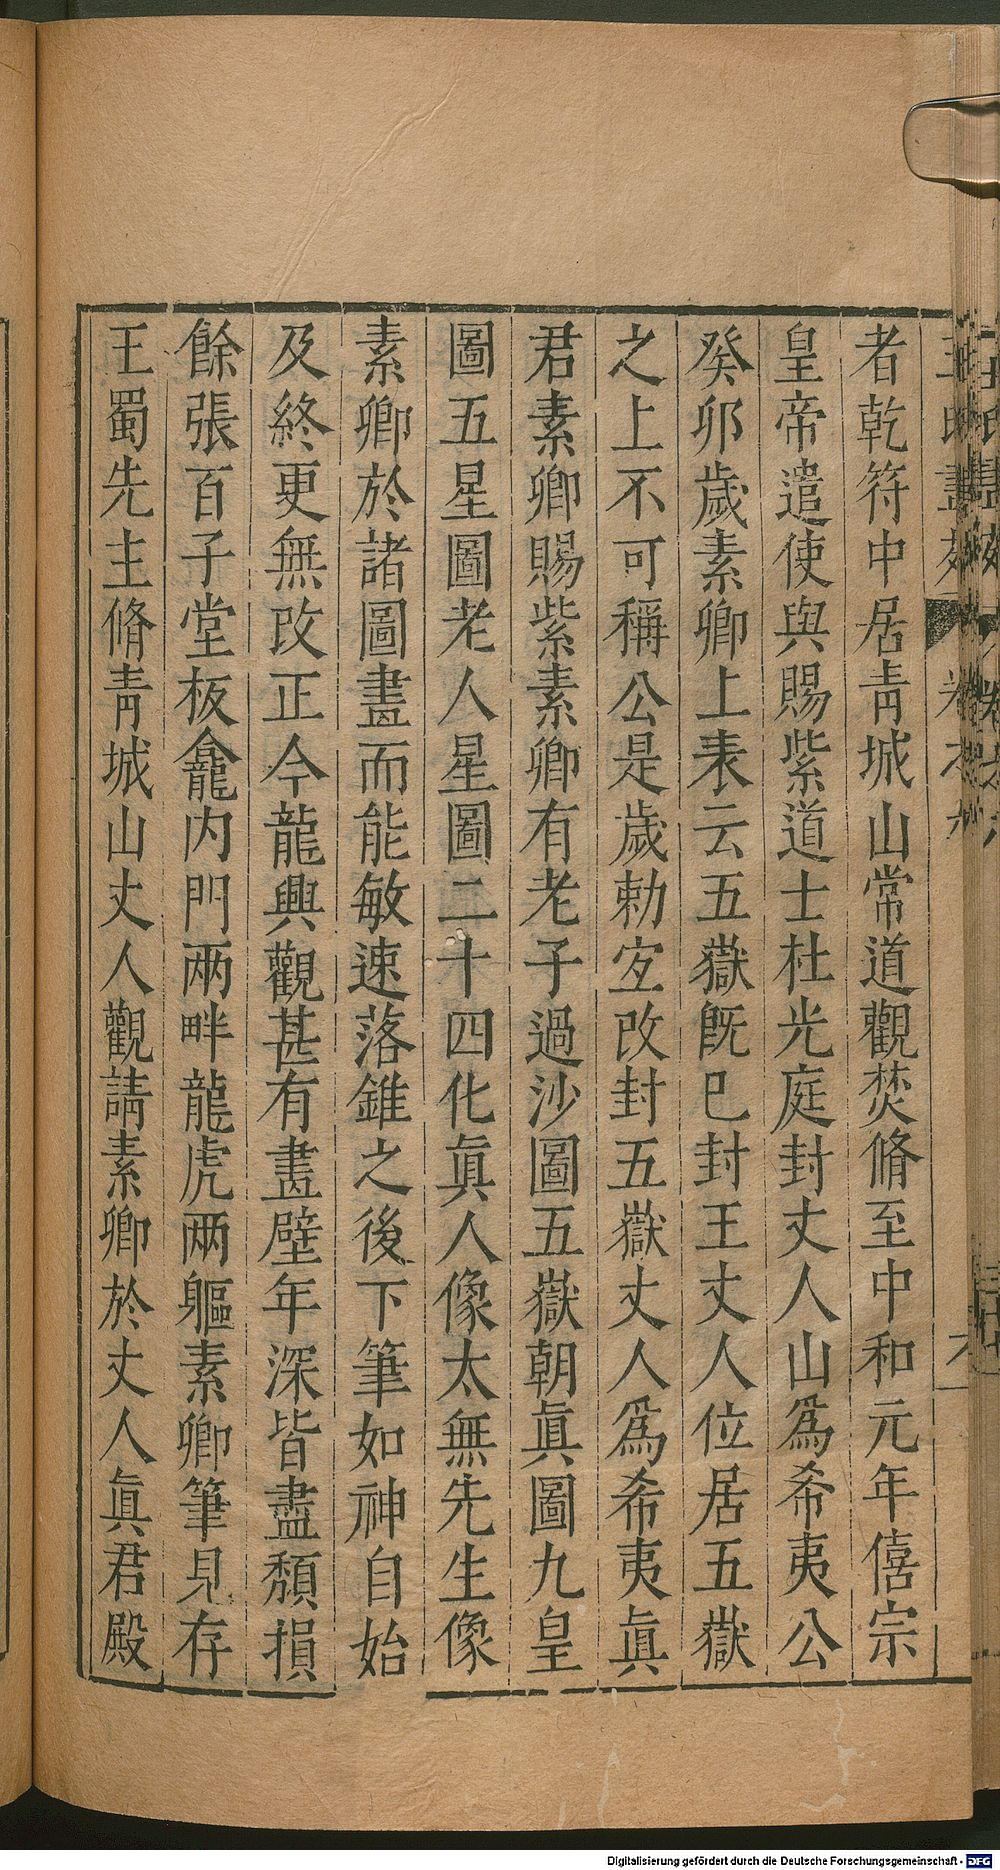 者乾符中居青城山常道觀焚脩至中和元年僖宗
皇帝遣使與賜紫道士杜光庭封丈人山爲希夷公
癸卯歲素卿上表云五嶽旣巳封王丈人位居五嶽
之上不可稱公是歲勅宜改封五嶽丈人爲希夷眞
君素卿賜紫素卿有老子過沙圖五嶽朝眞圖九皇
圖五星圖老人星圖二十四化眞人像太無先生像
素卿於諸圖畫而能敏速落錐之後下筆如神自始
及終更無改正今龍興觀甚有畫壁年深皆盡頽損
餘張百子堂板龕內門兩畔龍虎兩軀素卿筆見存
王蜀先主脩青城山丈人觀請素卿於丈人眞君殿
王氏畫苑 卷之六
Digitalisierung gefördert durch die Deutsche Forschungsgemeinschaft - DFG